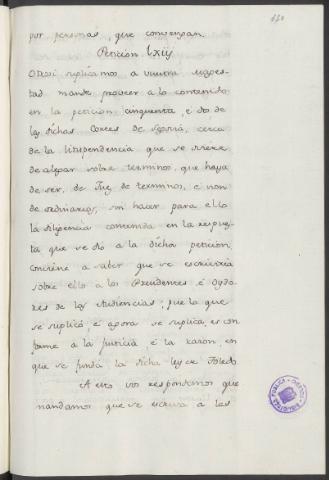 por personas, que convengan.
Peticion lxiij
Otrosi suplicamos a vuestra mages-
tad mande proveer a lo contenido
en la peticion cinquenta, e dos de
las dichas Cortes de Segovia, cerca
de la litispendencia que se
de alegar sobre terminos, que haya
de ser, de Juez de terminos, e non
de ordinarios, sin hacer para ello
la diligencia contenida en la respues-
ta que se dió a la dicha peticion,
conviene a saber que se escriviria
sobre ello a los Presidentes é Oydo-
res de las Audiencias; pues lo que
se suplicó é agora se suplica, es con
forme a la justicia é la razon, en
que se funda la dicha ley de Toledo.
A esto vos respondemos que
mandamos que se escriva a los
BIBLIOTECA PUBLICA